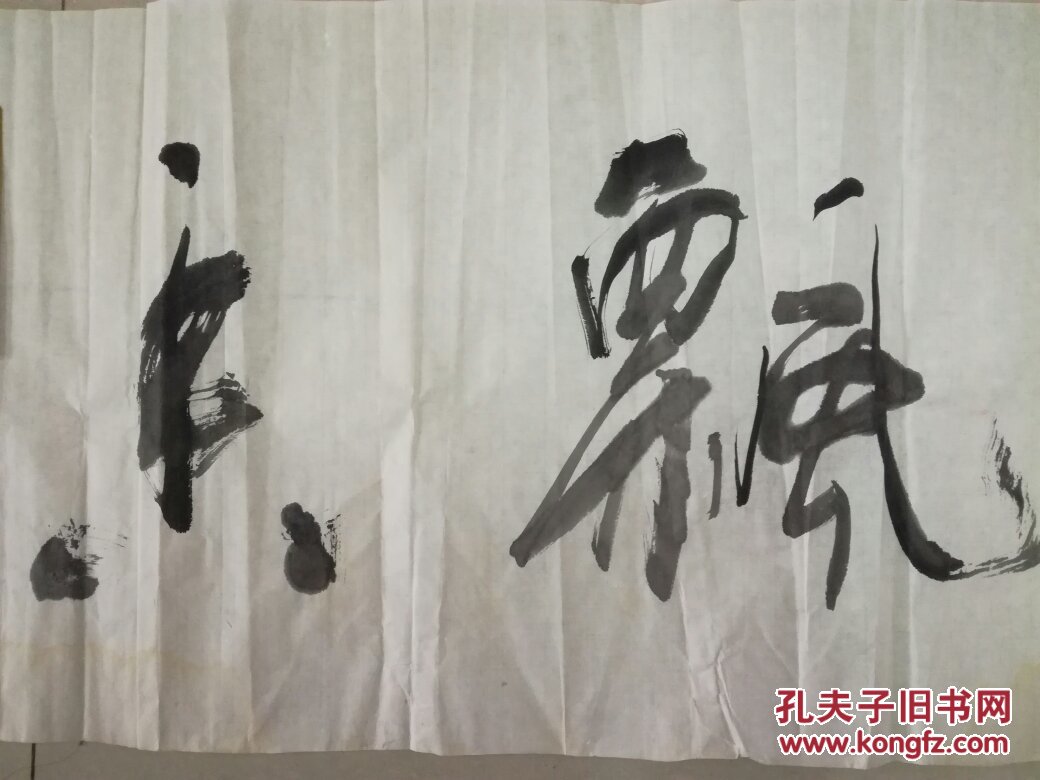 飄
孔夫子旧书网
www.kongfz.com